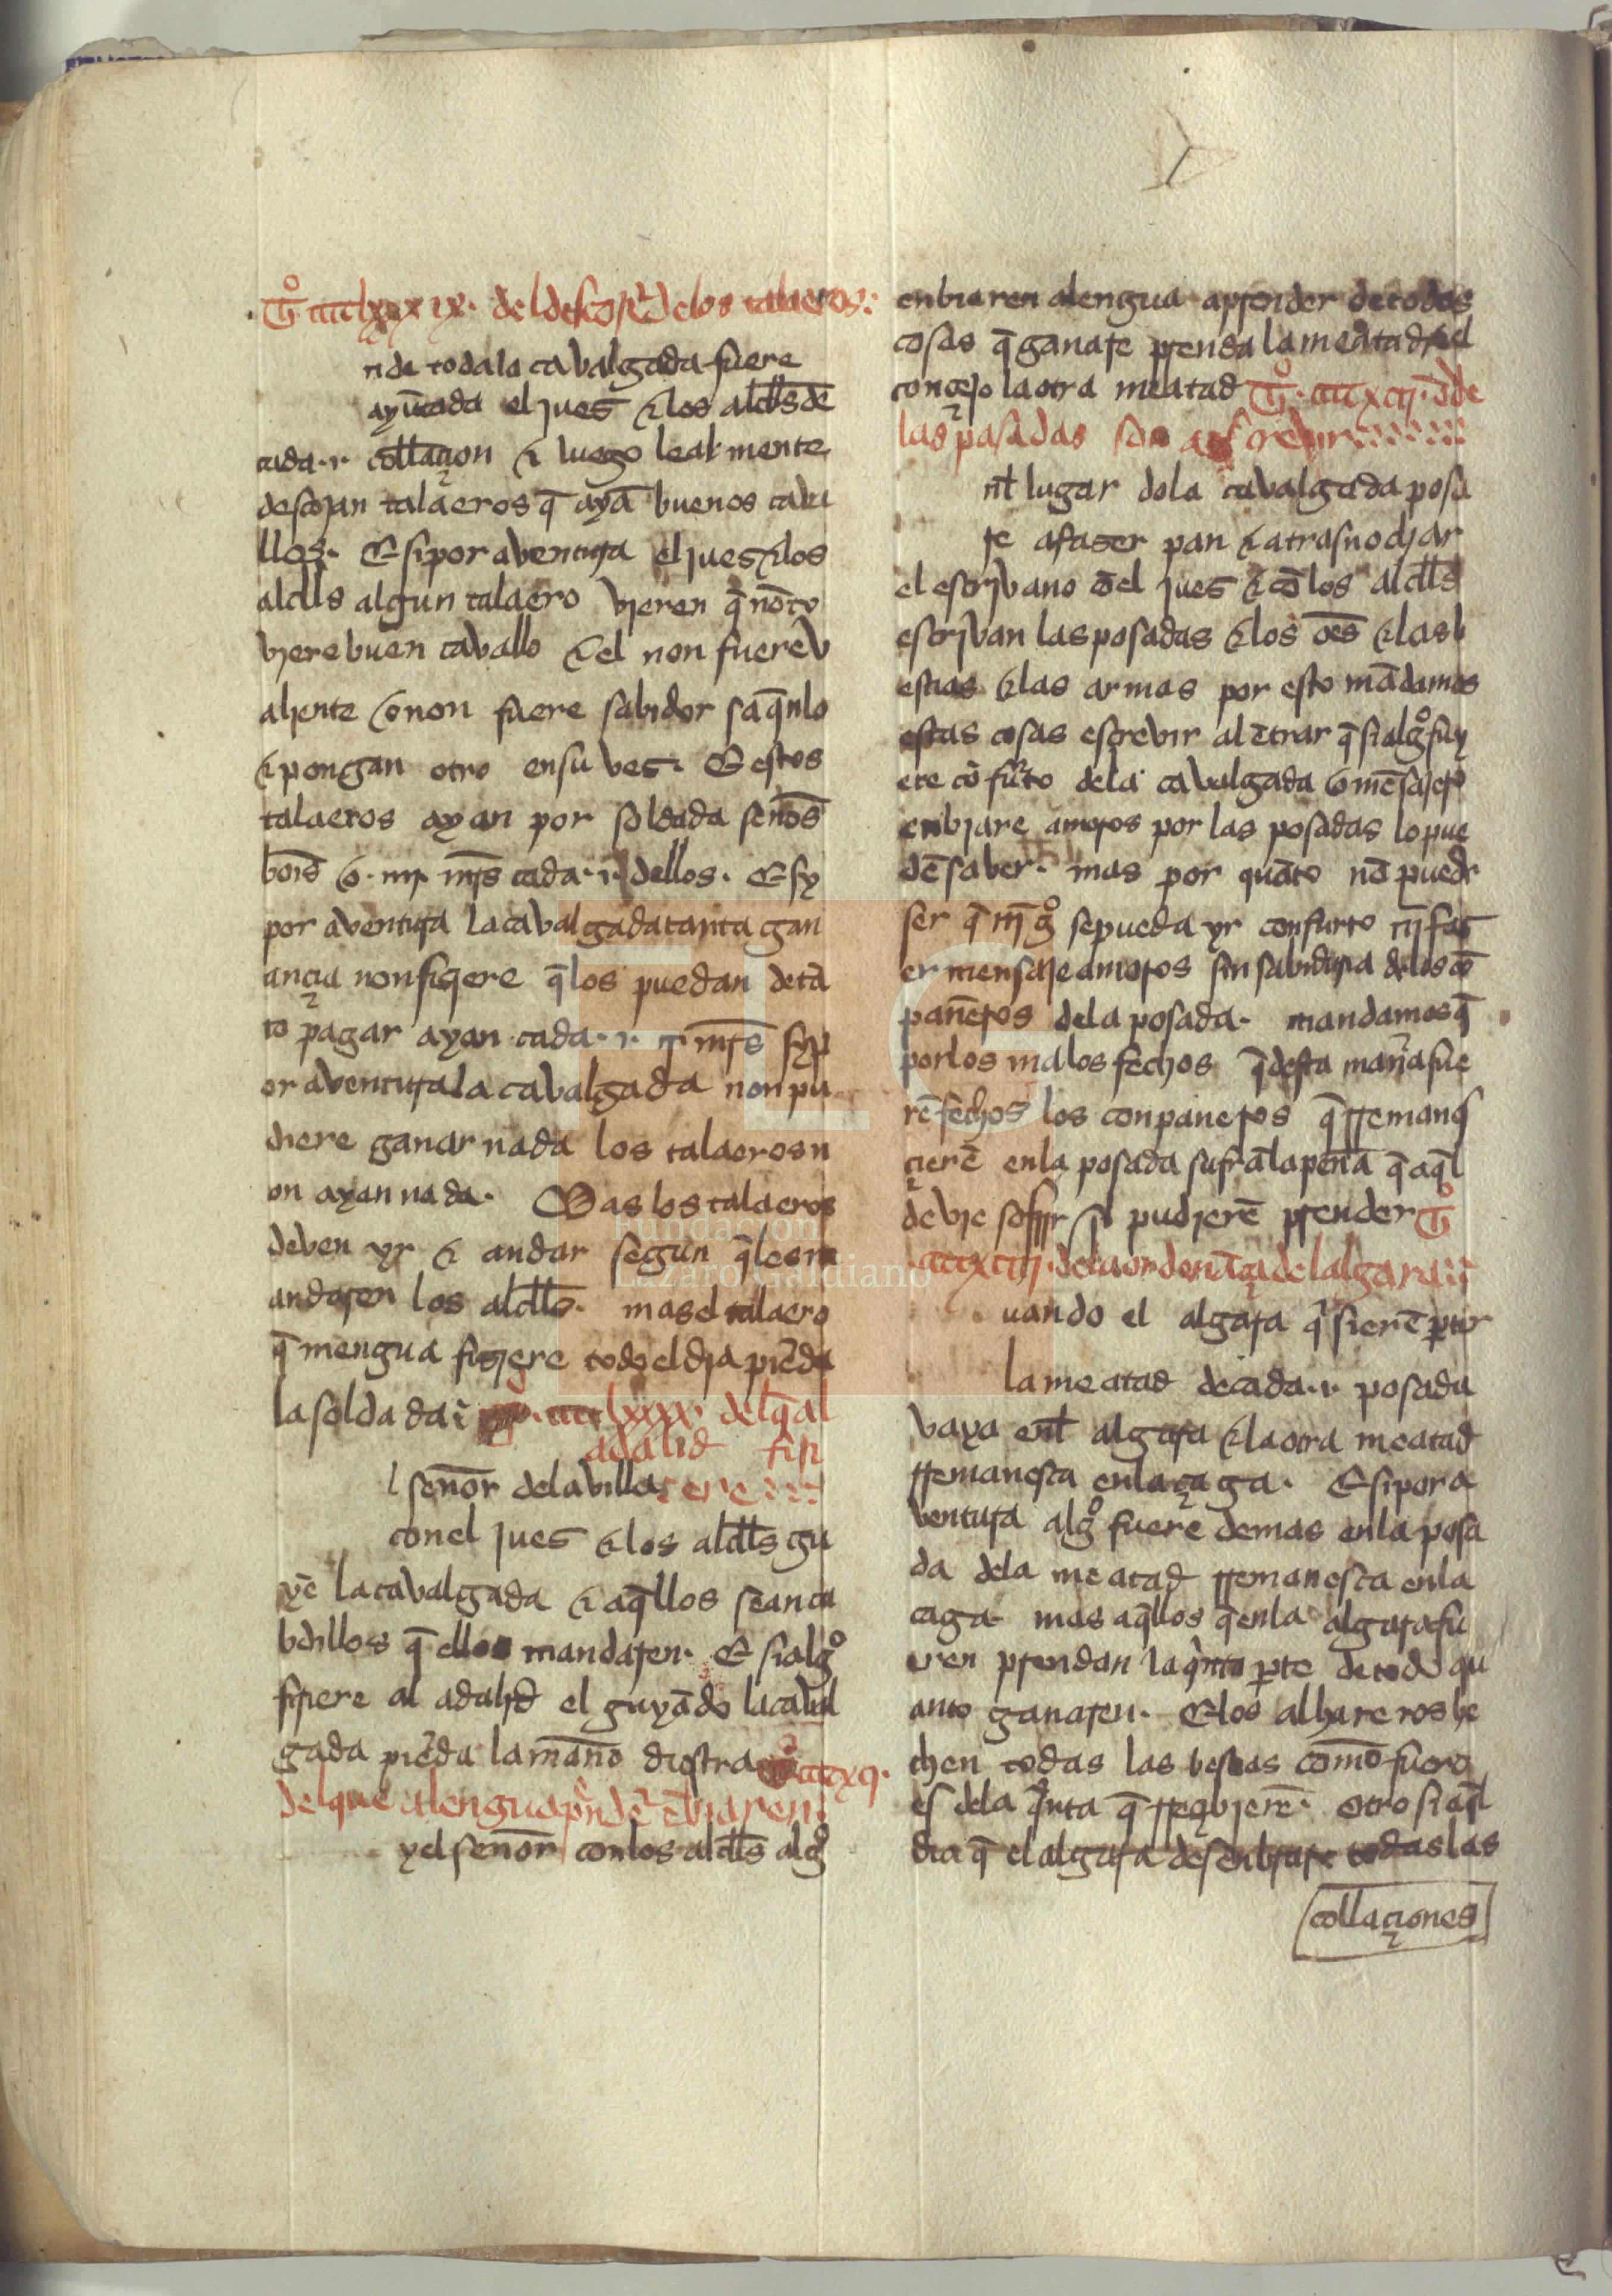 Tº ccclxxxix. del descojer delos talaeros:
nde toda la cavalgada fuere
ayūtada el jues & los alcłłs de
cada .i. collaçion & luego leal mente
descojan talaeros q̄ ayā buenos cava
llos. E si por aventura el jues & los
alcłłs algun talaero vieren q̄ nō to
viere buen cavallo & el non fuere v
aliente o non fuere sabidor saq̄nlo
& pongan otro en su ves. E estos
talaeros ayan por soldada sen̄os
o .iiij. mr̄s cada .i. dellos. E sy
por aventura la cavalgada tanta gan
ançia non fisiere q̄ los puedan de tā
to pagar ayan cada .i. ij. mr̄s sy p
or aventura la cavalgada non pu
diere ganar nada los talaeros n
on ayan nada. Mas los talaeros
deven yr & andar segun q̄ les m
andaren los alcłłs. mas el talaero
q̄ mengua fisiere todo el dia piēda
la soldada: cccxxxx. del q̄ al
adalid firi
l sen̄or dela villa ere
con el jues & los alcłłs gu
yē la cavalgada & aq̄llos sean ca
bdillos q̄ ellos mandaren. E si algº
firiere al adalid el guyādo la caval
gada piēda la mano diestra Tº cccxcj.
del que a lengua prēder ēviaren.
y el sen̄or con los alcłłs algº
enbiaren a lengua aprender de todas
cosas q̄ ganare prenda la meatad & el
conçejo la otra meatad Tº. cccxcij. de
las posadas son a escrevir
nł lugar do la cavalgada posa
re a faser pan & a trasnochar
el escrivano cō el jues & cō los alcłłs
escrivan las posadas & los oēs & las b
estias & las armas por esto mādamos
estas cosas escrevir al ētrar q̄ si algº fuy
ere cō furto dela cavalgada o mēsajero
enbiare a moros por las posadas lo pue
dē saber. mas por quāto nō puede
ser q̄ nīgº se pueda yr con furto nj fas
er mensaje a moros sin sabiduria delos cō
pan̄eros dela posada. mandamos q̄
por los malos fechos q̄ desta man̄a fue
rē fechos los conpaneros q̄ rremanes
çierē en la posada sufrā la pena q̄ aq̄l
devie sofrir si pudierē prender Tº
cccxciij. dela ordenāça del algara::
uando el algara q̄sierē partir
la meatad de cada .i. posada
vaya enł algara & la otra meatad
rremanesca en la çaga. E si por a
ventura algº fuere demas en la posa
da dela meatad rremanesca en la
çaga mas aq̄llos q̄ en la algara fu
eren prendan la q̄nta parte de todo qu
anto ganaren. E los albareros he
chen todas las bestias como fuero
es dela q̄nta q̄ rreq̄rierē. otro si aq̄l
dia q̄ el algara desenbrare todas las
collaçiones